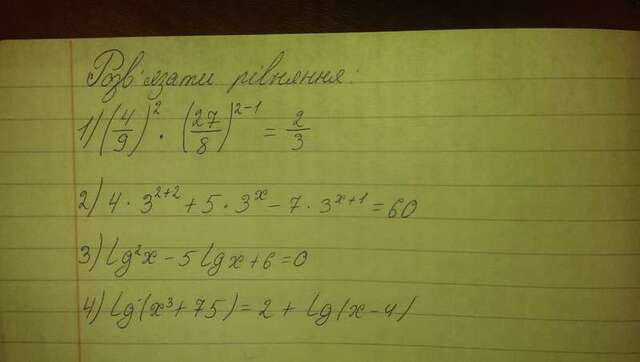 Розв'язати рівняння:
1) (4/9)^2 · (27/8)^{2-1} = 2/3
2) 4 · 3^{2+2} + 5 · 3^x - 7 · 3^{x+1} = 60
3) lg²x - 5 lg x + 6 = 0
4) lg(x³ + 75) = 2 + lg(x - 4)